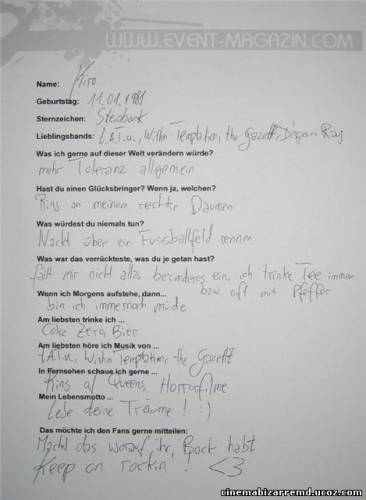 WWW.EVENT-MAGAZIN.COM
Name: Kiro
Geburtstag: 11.01.1988
Sternzeichen: Steinbock
Lieblingsbands: t.A.T.u., Within Temptation, the Gazette, D'espairs Ray
Was ich gerne auf dieser Welt verändern würde?
mehr Toleranz allgemein
Hast du einen Glücksbringer? Wenn ja, welchen?
Ring an meinem rechten Daumen
Was würdest du niemals tun?
Nackt über ein Fussballfeld rennen
Was war das verrückteste, was du je getan hast?
fällt mir nicht allzu besonderes ein, ich trinke Tee immer
bzw. oft mit Pfeffer
Wenn ich Morgens aufstehe, dann...
bin ich immernoch müde
Am liebsten trinke ich ...
Coke Zero Bier
Am liebsten höre ich Musik von ...
t.A.T.u., Within Temptation, the Gazette
In Fernsehen schaue ich gerne ...
King of Queens, Horrorfilme
Mein Lebensmotto ...
Lebe deine Träume! :)
Das möchte ich den Fans gerne mitteilen:
Macht das worauf ihr Bock habt
Keep on rockin! <3
cinemabizarremd.ucoz.com